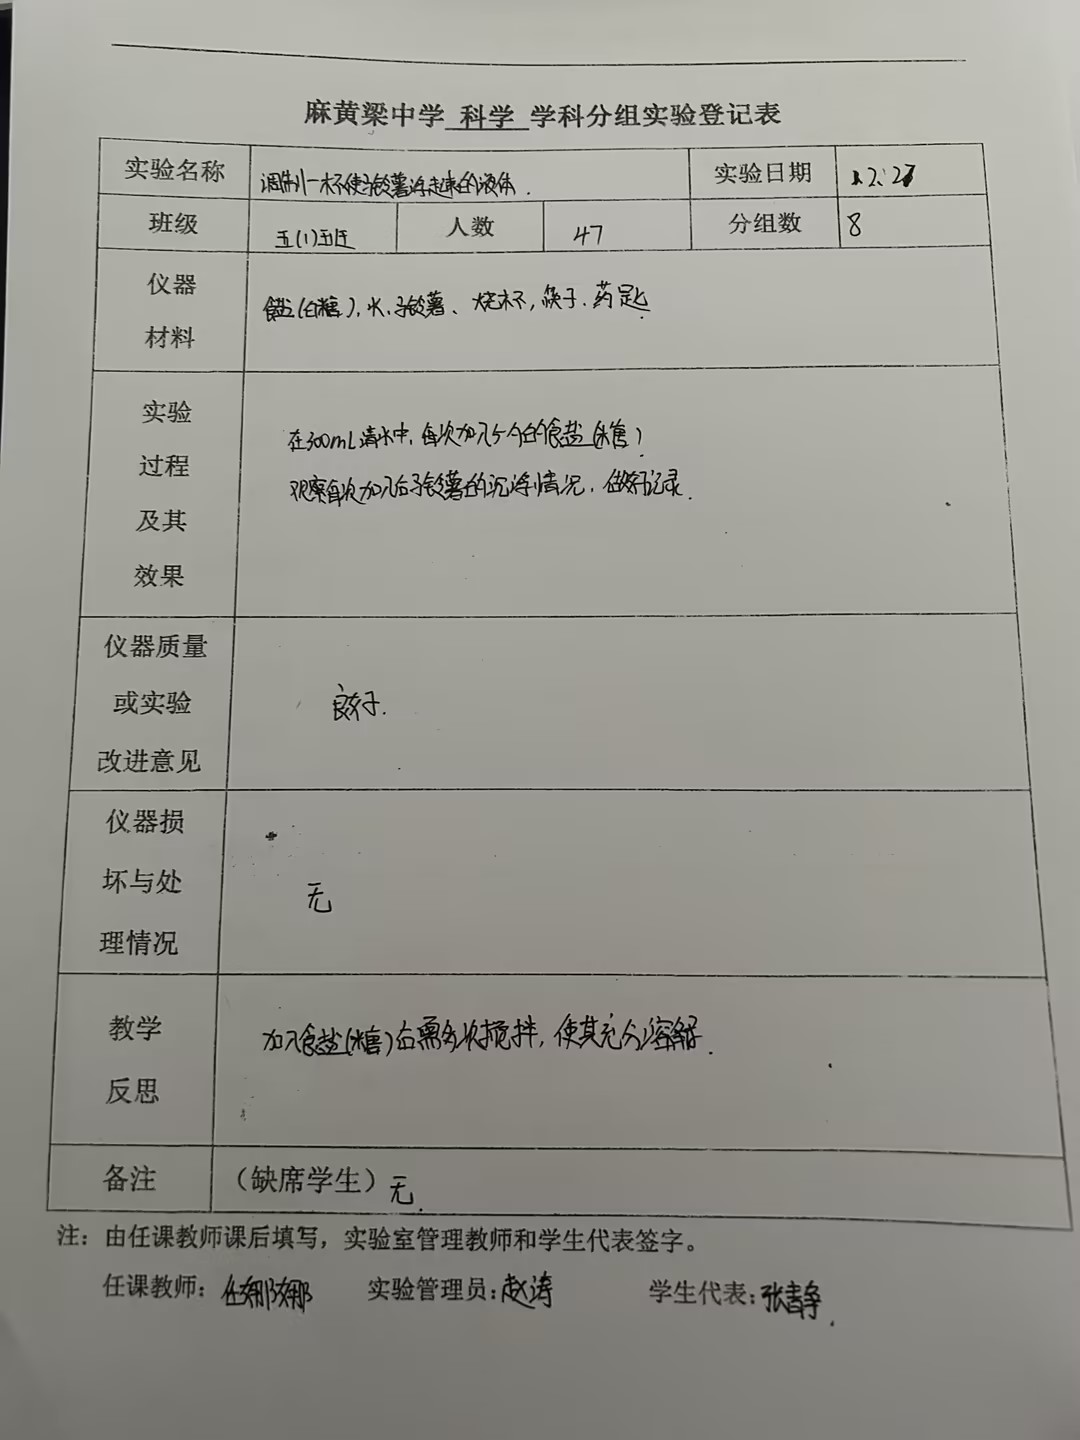 麻黄梁中学 科学 学科分组实验登记表
实验名称 调制一杯使马铃薯浮起来的液体. 实验日期 12.27
班级 五(1)班 人数 47 分组数 8
仪器
材料
食盐(白糖),水,马铃薯、烧杯,筷子.药匙.
实验
过程
及其
效果
在300mL清水中,每次加入5勺的食盐(糖)
观察每次加入后马铃薯的沉浮情况,做好记录.
仪器质量
或实验
改进意见
良好.
仪器损
坏与处
理情况
无
教学
反思
加入食盐(糖)后需多次搅拌,使其充分溶解.
备注 (缺席学生)无.
注:由任课教师课后填写,实验室管理教师和学生代表签字。
任课教师:任娜娜 实验管理员:赵涛 学生代表:张静.